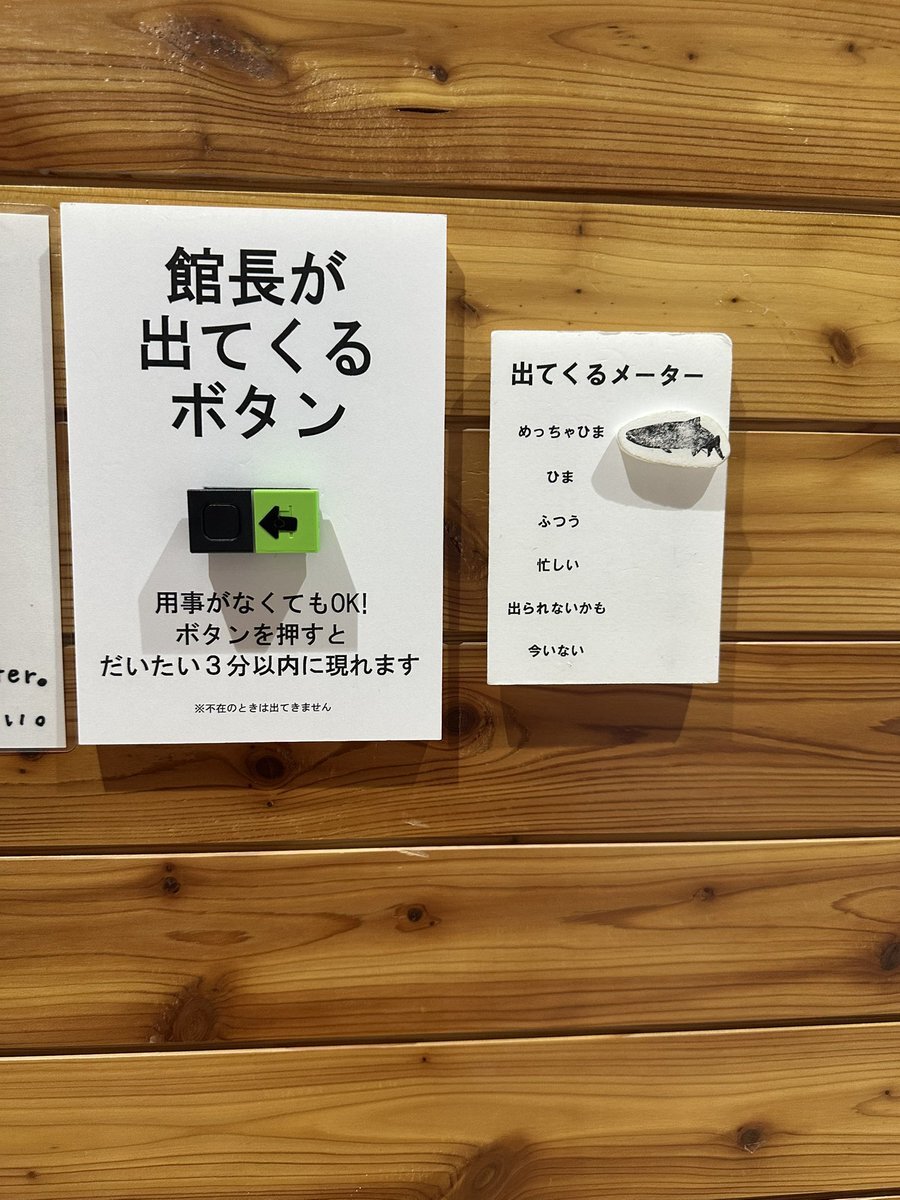 館長が
出てくる
ボタン
用事がなくてもOK!
ボタンを押すと
だいたい３分以内に現れます
※不在のときは出てきません
出てくるメーター
めっちゃひま
ひま
ふつう
忙しい
出られないかも
今いない